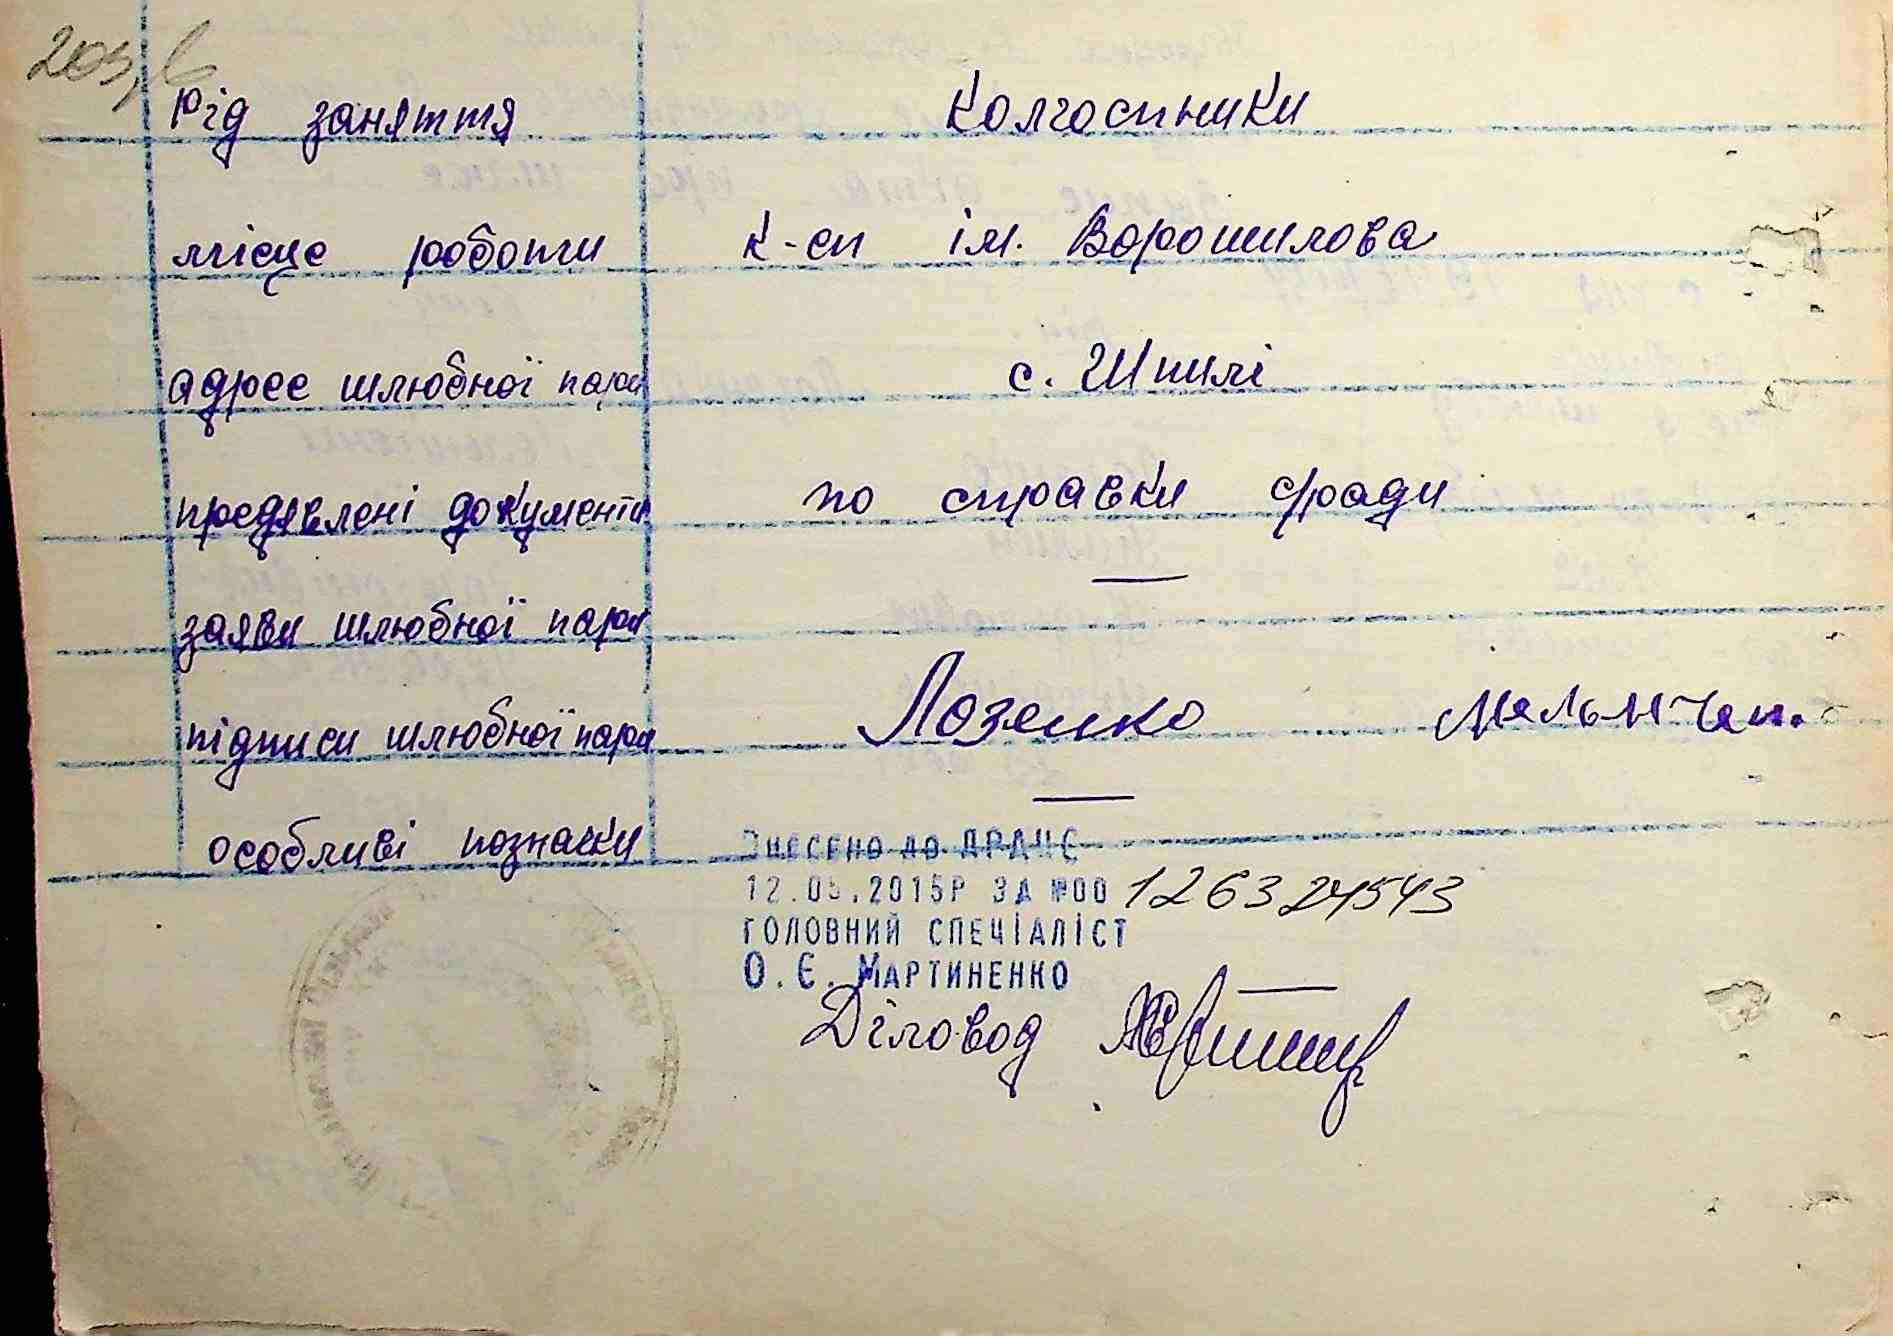 203, в
Рід заняття колгоспники
місце роботи к-сп ім. Ворошилова
адрес шлюбної пари с. Шпилі
предявлені документи по справки с/ради
заяви шлюбної пари —
підписи шлюбної пари Лозенко Мельнчен.
особливі позначки —
Внесено до ДРАЦС
12.05.2015р за №00 126324543
головний спеціаліст
О.Є. Мартиненко
Діловод